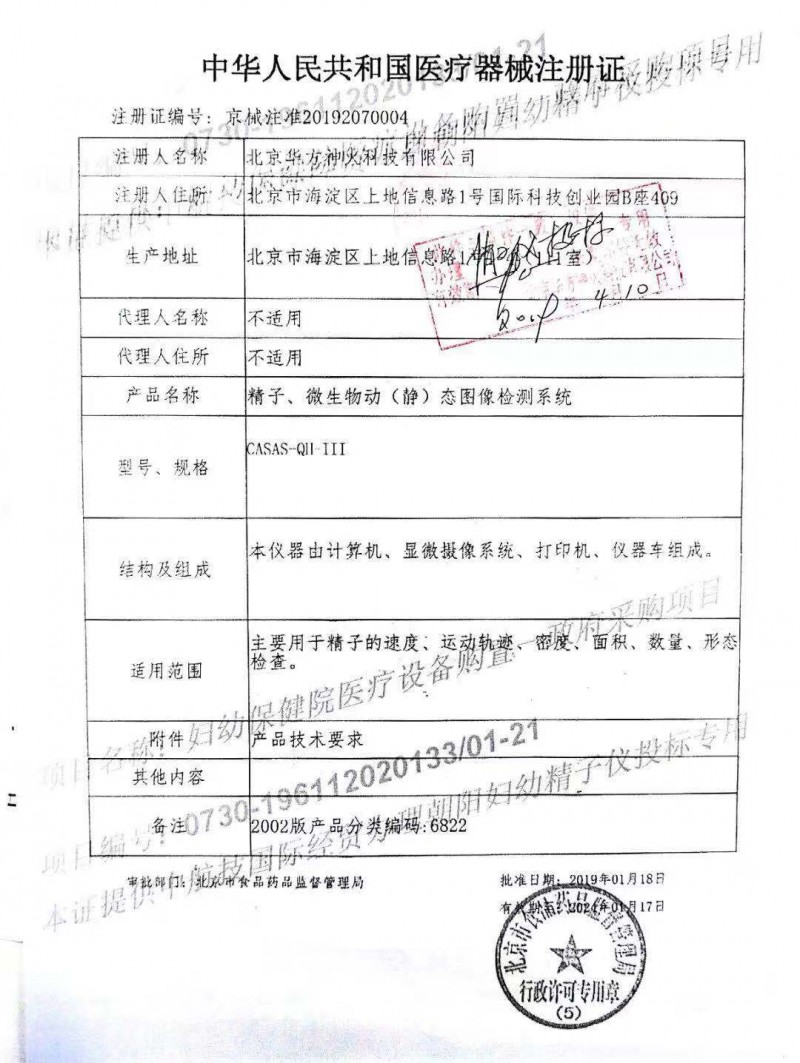 中华人民共和国医疗器械注册证
注册证编号：京械注准20192070004
注册人名称 北京华方神火科技有限公司
注册人住所 北京市海淀区上地信息路1号国际科技创业园B座409
生产地址 北京市海淀区上地信息路1号
代理人名称 不适用
代理人住所 不适用
产品名称 精子、微生物动（静）态图像检测系统
型号、规格 CASAS-QH-III
结构及组成 本仪器由计算机、显微摄像系统、打印机、仪器车组成。
适用范围 主要用于精子的速度、运动轨迹、密度、面积、数量、形态
检查。
附件 产品技术要求
其他内容
备注 2002版产品分类编码:6822
审批部门：北京市食品药品监督管理局
批准日期：2019年01月18日
有效期至：2024年01月17日
北京市食品药品监督管理局
行政许可专用章
(5)
4月10日
项目名称：妇幼保健院医疗设备购置—政府采购项目
项目编号：0730-196112020133/01-21
本证提供中航技国际经贸办理朝阳妇幼精子仪投标专用